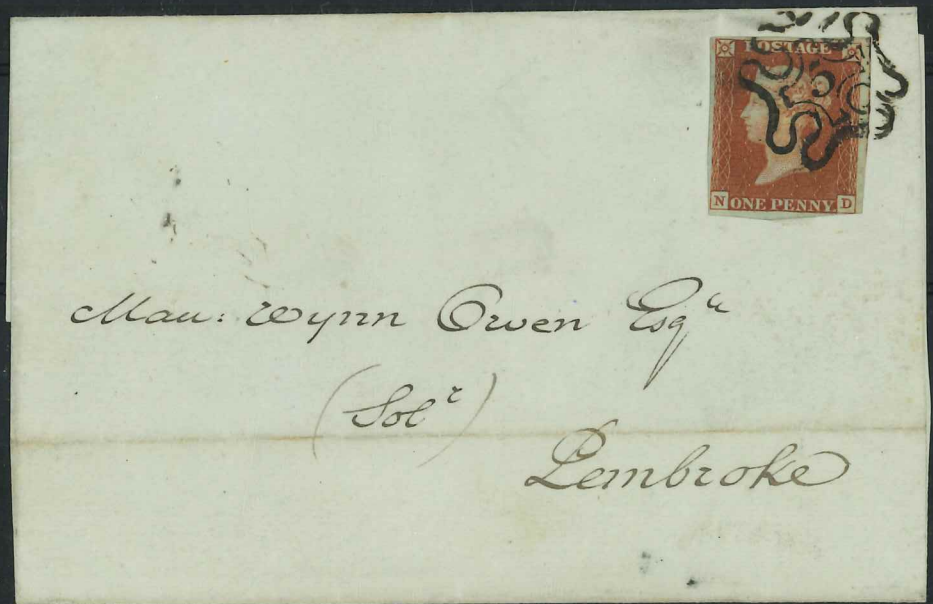 POSTAGE
N ONE PENNY. D
Mau: Wynn Owen Esqr
(Solr)
Pembroke